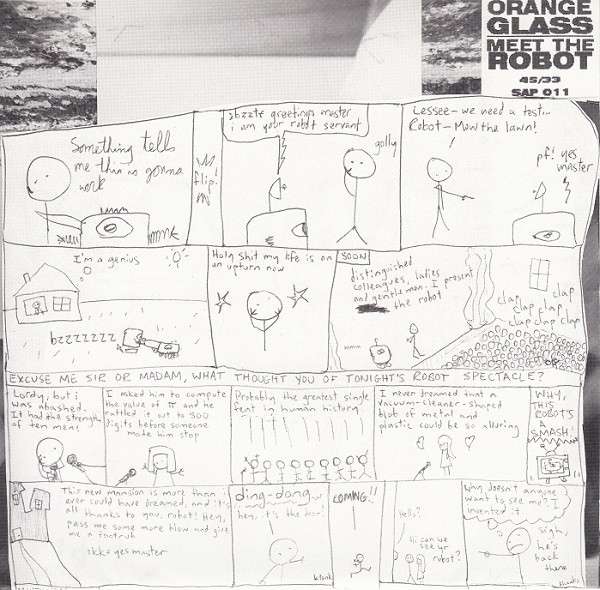 ORANGE
GLASS
MEET THE
ROBOT
45/33
SAP 011
Something tells
me this is gonna
work
flip!
greetings master
i am your robot servant
golly
Lessee - we need a test...
Robot - Mow the lawn!
pf! yes
master
I'm a genius
bzzzzzzz
Holy shit my life is on
an upturn now
SOON
distinguished
colleagues, ladies
and gentlemen. I present
the robot
clap
clap
clap clap
clap clap
clap clap clap
EXCUSE ME SIR OR MADAM, WHAT THOUGHT YOU OF TONIGHT'S ROBOT SPECTACLE?
Lordy, but i
was abashed.
It had the strength
of ten men!
I asked him to compute
the value of π and he
rattled it out to 500
digits before someone
made him stop
Probably the greatest single
feat in human history
I never dreamed that a
vacuum-cleaner-shaped
blob of metal and
plastic could be so alluring
WHY,
THIS
ROBOT'S
A
SMASH!
This new mansion is more than i
ever could have dreamed, and it's
all thanks to you, robot! Hey,
pass me some more blow and give
me a footrub
yes master
ding-dang
hey, it's the door!
COMING!!
Hello?
Hi can we
see yr
robot?
Why doesn't anyone
want to see me? I
invented it
sigh,
he's
back
there